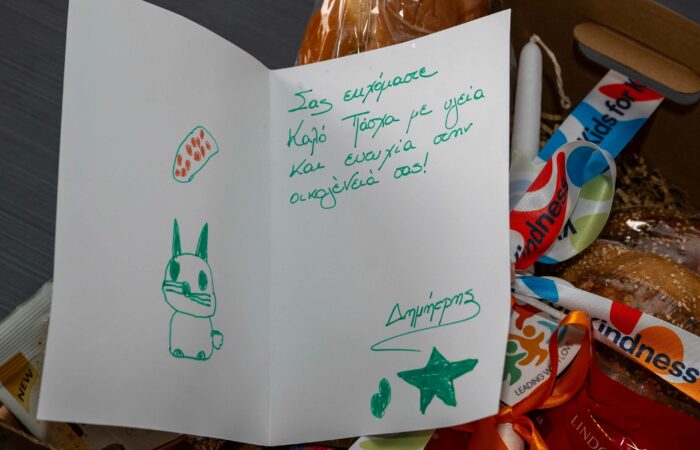 Σας ευχόμαστε
Καλό Πάσχα με υγεία
και ευτυχία στην
οικογένειά σας!
Δημήτρης
Kids for K
Kindness
K
Kindness
LEADING WITH LOVE
LIND
NEW